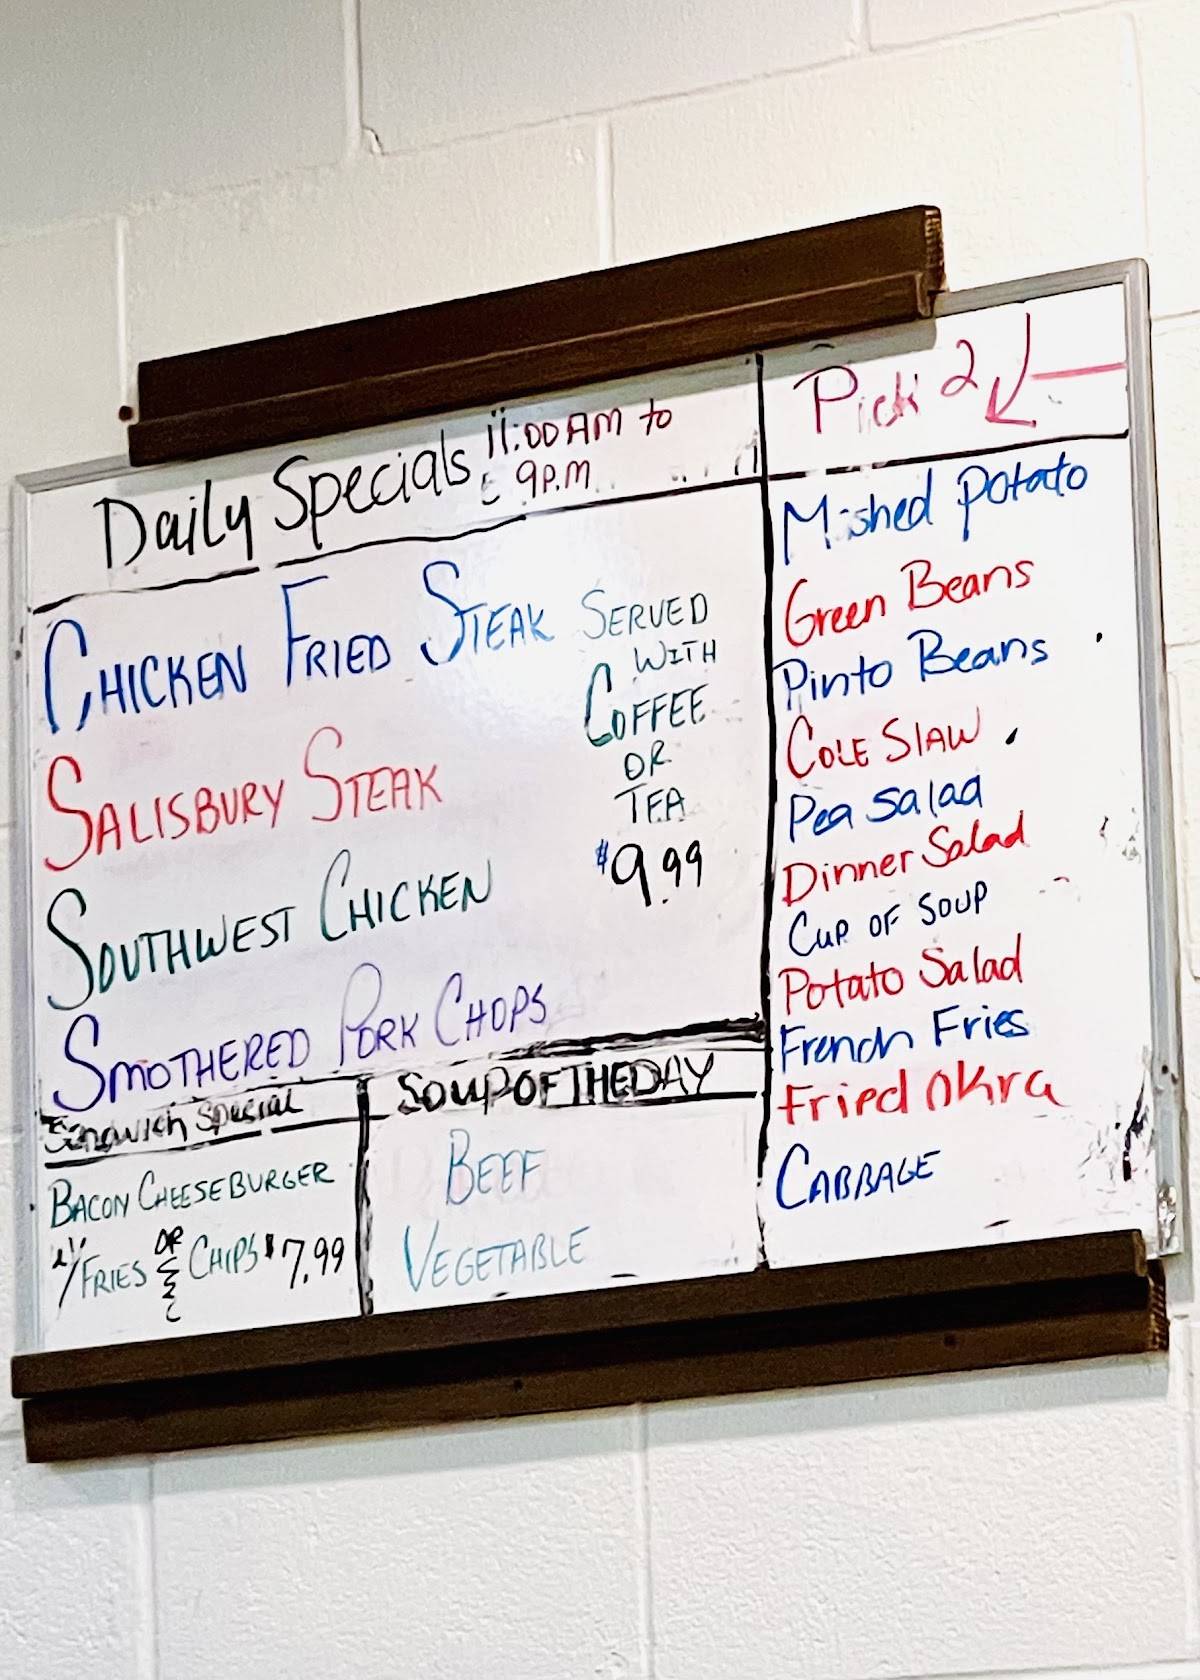 Daily Specials 11:00AM to
9P.M
CHICKEN FRIED STEAK
SALISBURY STEAK
SOUTHWEST CHICKEN
SMOTHERED PORK CHOPS
SERVED
WITH
COFFEE
OR
TEA
$9.99
Sandwich Special
BACON CHEESEBURGER
W/ FRIES OR CHIPS $7.99
SOUP OF THE DAY
BEEF
VEGETABLE
Pick 2
Mashed Potato
Green Beans
Pinto Beans
COLE SLAW
Pea Salad
Dinner Salad
CUP OF SOUP
Potato Salad
French Fries
Fried Okra
CABBAGE